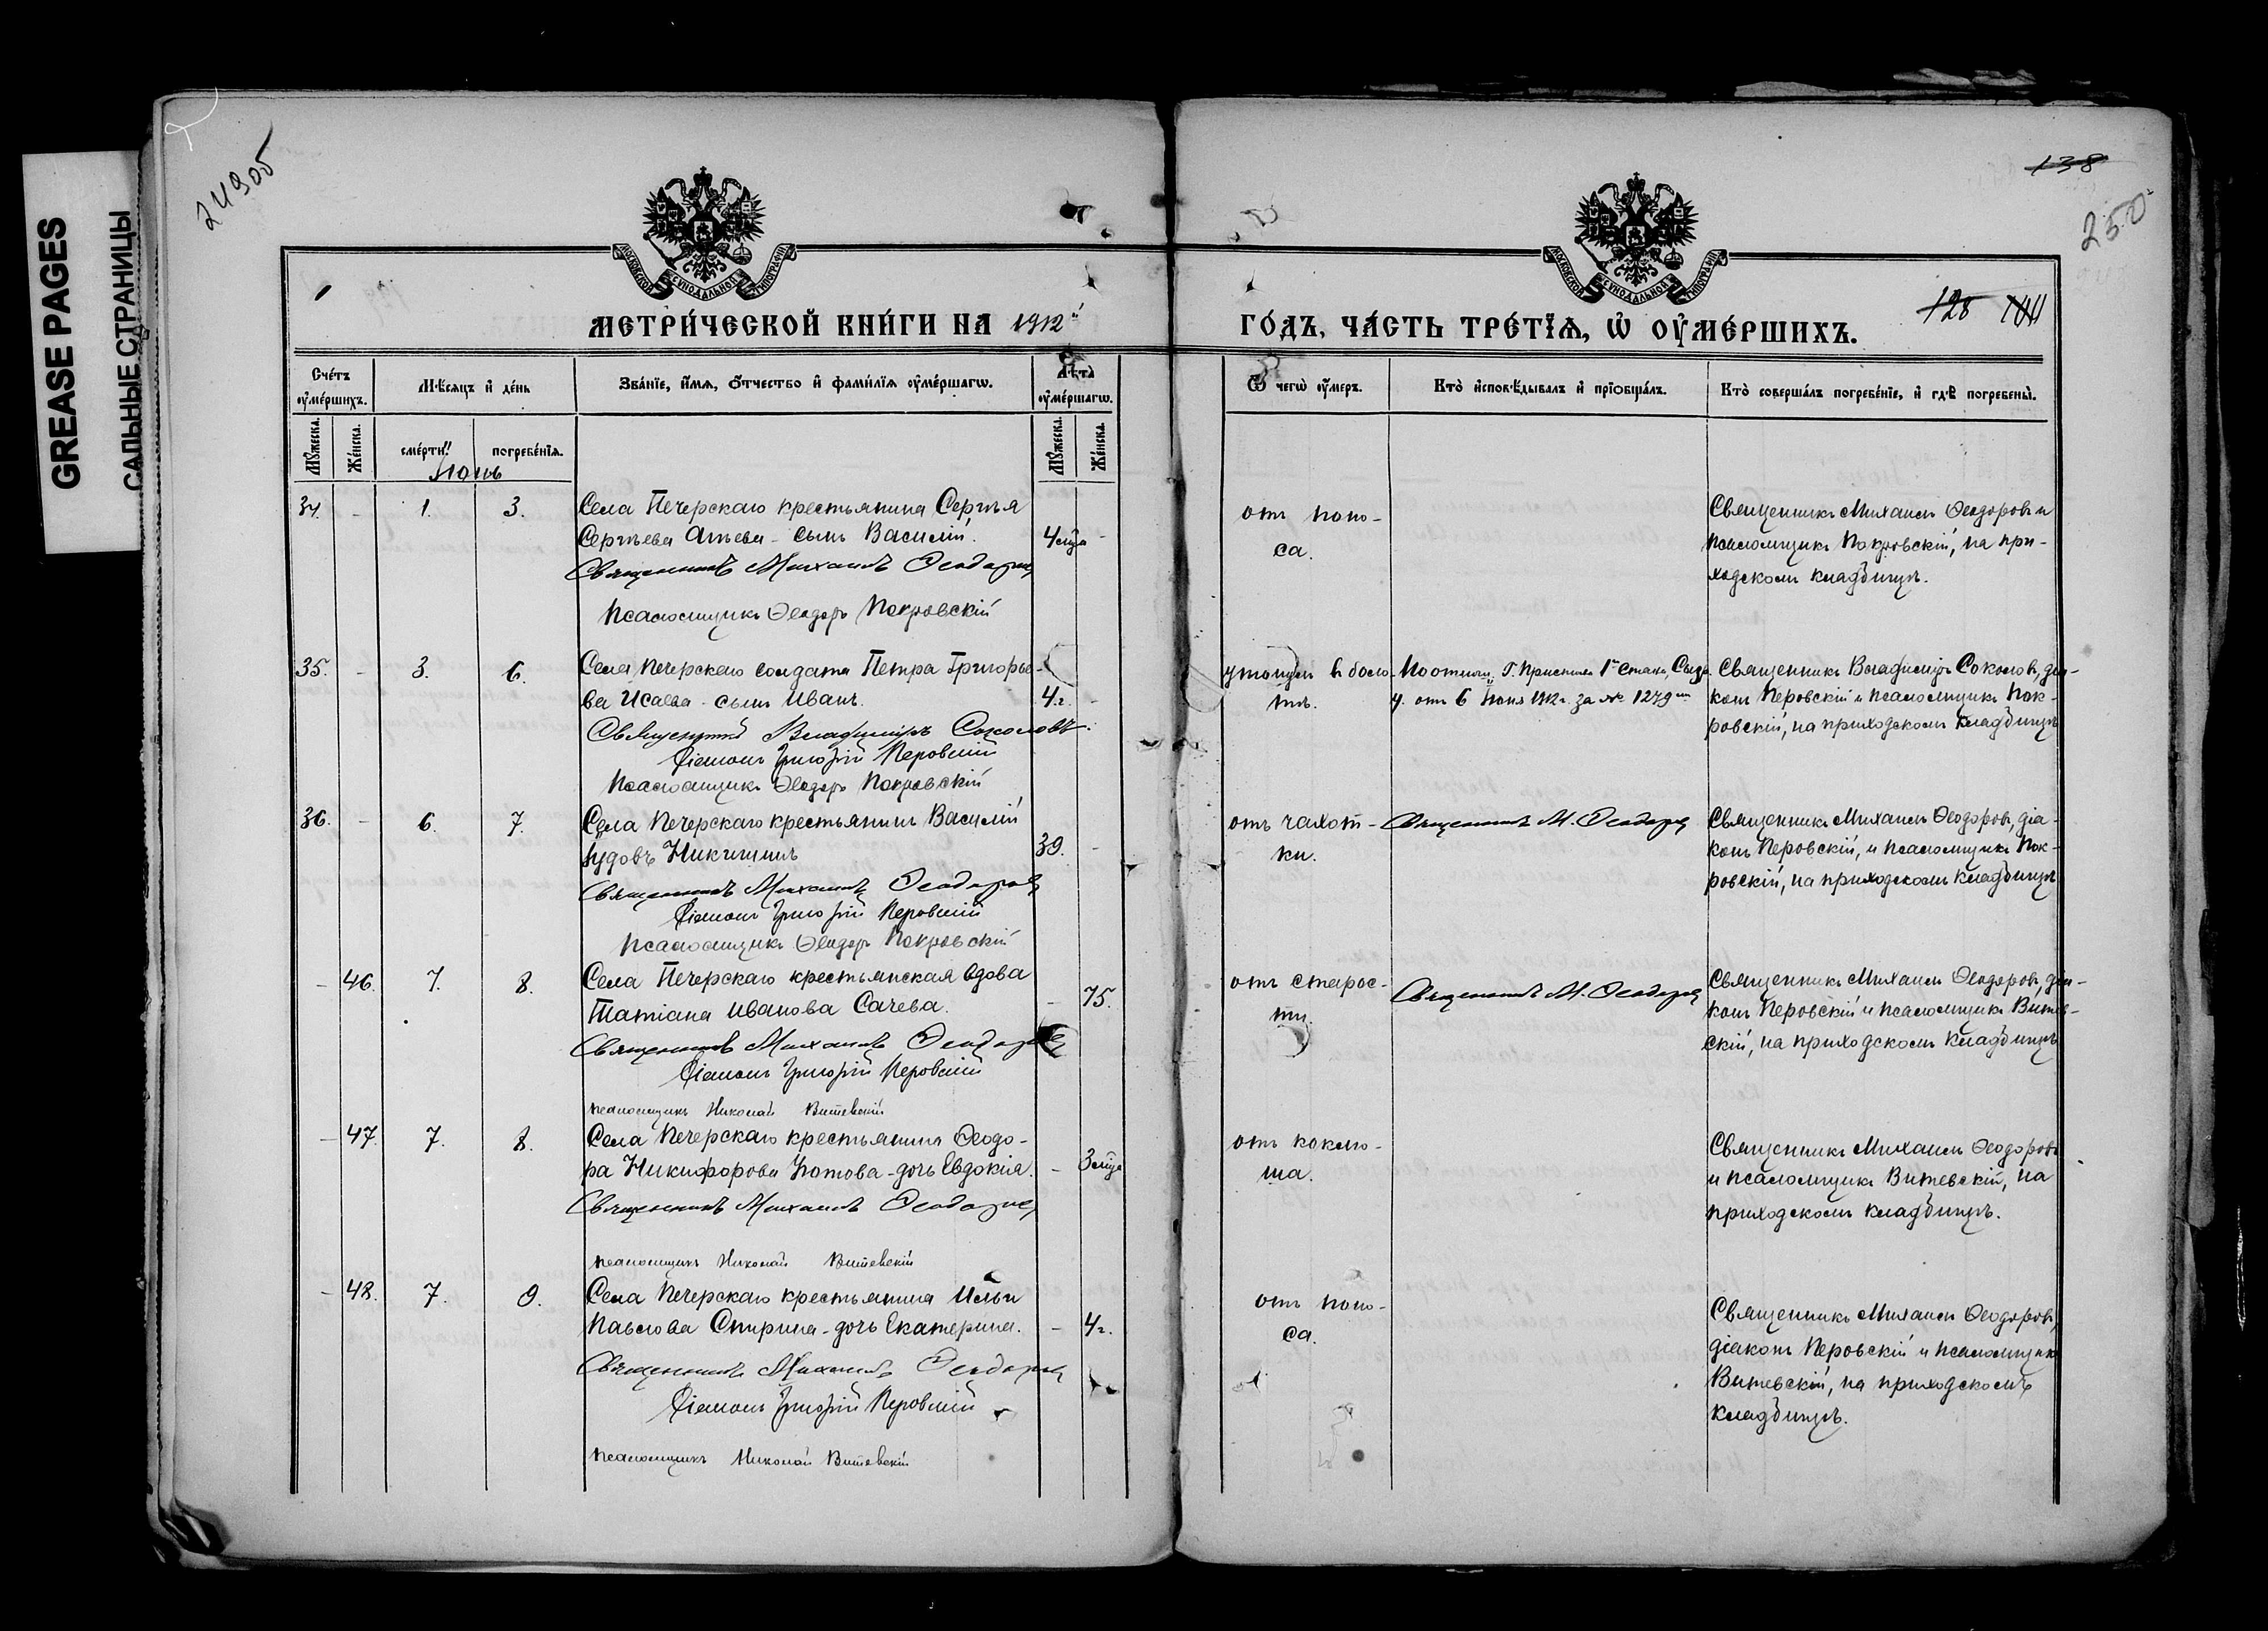 GREASE PAGES
САЛЬНЫЕ СТРАНИЦЫ
138
250
128
МОСКОВСКОЙ СѴНОДАЛЬНОЙ ТИПОГРАФІИ
МОСКОВСКОЙ СѴНОДАЛЬНОЙ ТИПОГРАФІИ
МЕТРИ́ЧЕСКОЙ КНИ́ГИ НА 1912й
ГО́ДЪ, ЧА́СТЬ ТРЕ́ТЇѦ, Ѡ ОУ҆МЕ́РШИХЪ.
Сче́тъ оу҆ме́ршихъ.
Мѣ́сяцъ и҆ де́нь
Зва́нїе, и҆́мѧ, ѻ҆́тчество и҆ фами́лїѧ оу҆ме́ршагѡ.
Лѣ́та оу҆ме́ршагѡ.
Ѿ чегѡ̀ оу҆́меръ.
Кто̀ и҆сповѣ́дывалъ и҆ прїѡбща́лъ.
Кто̀ соверша́лъ погребе́нїе, и҆ гдѣ̀ погребены̀.
Мꙋ́жеска.
Же́нска.
сме́рти.
погребе́нїѧ.
Мꙋ́жеска.
Же́нска.
Іюнь
34. - 1. 3. Села Печерскаго крестьянина Сергѣя
Сергѣева Агѣева - сынъ Василій. 4 мѣс. -
Священникъ Михаилъ Ѳеодоровъ
Псаломщикъ Ѳеодоръ Покровскій
отъ поно-
са.
Священникъ Михаилъ Ѳеодоровъ и
псаломщикъ Покровскій, на при-
ходскомъ кладбищѣ.
35. - 3. 6. Села Печерскаго солдата Петра Григорье-
ва Исаева - сынъ Иванъ. 4 г. -
Священникъ Владиміръ Соколовъ
Діаконъ Григорій Перовскій
Псаломщикъ Ѳеодоръ Покровскій
утонулъ въ боло-
тѣ.
По отнош. Г. Пристава 1го стана, Сызр.
у. отъ 6 Іюня 1912 г. за № 1279мъ
Священникъ Владиміръ Соколовъ, діа-
конъ Перовскій и псаломщикъ Пок-
ровскій, на приходскомъ кладбищѣ
36. - 6. 7. Села Печерскаго крестьянинъ Василій
Никишинъ 39. -
Священникъ Михаилъ Ѳеодоровъ
Діаконъ Григорій Перовскій
Псаломщикъ Ѳеодоръ Покровскій
отъ чахот-
ки.
Священникъ М. Ѳеодоровъ
Священникъ Михаилъ Ѳеодоровъ, діа-
конъ Перовскій, и псаломщикъ Пок-
ровскій, на приходскомъ кладбищѣ
- 46. 7. 8. Села Печерскаго крестьянская вдова
Татіана Иванова Сачева. - 75.
Священникъ Михаилъ Ѳеодоровъ
Діаконъ Григорій Перовскій
псаломщикъ Николай Витевскій
отъ старос-
ти.
Священникъ М. Ѳеодоровъ
Священникъ Михаилъ Ѳеодоровъ, діа-
конъ Перовскій и псаломщикъ Витев-
скій, на приходскомъ кладбищѣ
- 47. 7. 8. Села Печерскаго крестьянина Ѳеодо-
ра Никифорова - дочь Евдокія. - 3 мѣс.
Священникъ Михаилъ Ѳеодоровъ
псаломщикъ Николай Витевскій
отъ коклю-
ша.
Священникъ Михаилъ Ѳеодоровъ
и псаломщикъ Витевскій, на
приходскомъ кладбищѣ.
- 48. 7. 9. Села Печерскаго крестьянина Ильи
Павлова Спирина - дочь Екатерина. - 4 г.
Священникъ Михаилъ Ѳеодоровъ
Діаконъ Григорій Перовскій
псаломщикъ Николай Витевскій
отъ поно-
са.
Священникъ Михаилъ Ѳеодоровъ,
діаконъ Перовскій и псаломщикъ
Витевскій, на приходскомъ
кладбищѣ.